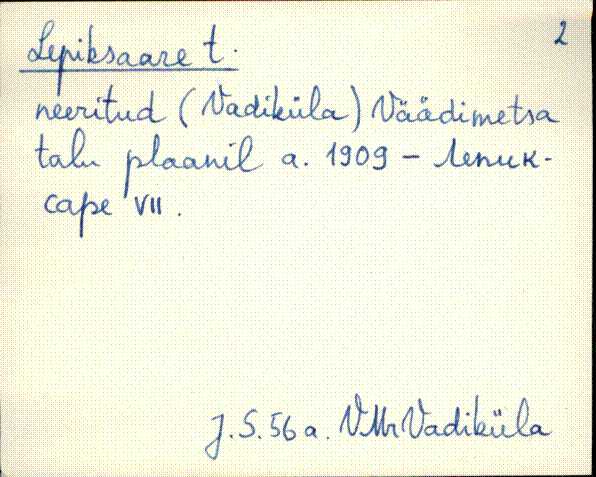 2
Lepiksaare t.
neeritud (Vadiküla) Väädimetsa
talu plaanil a. 1909 – Лепик-
саре VII.
J. S. 56 a. VMr Vadiküla